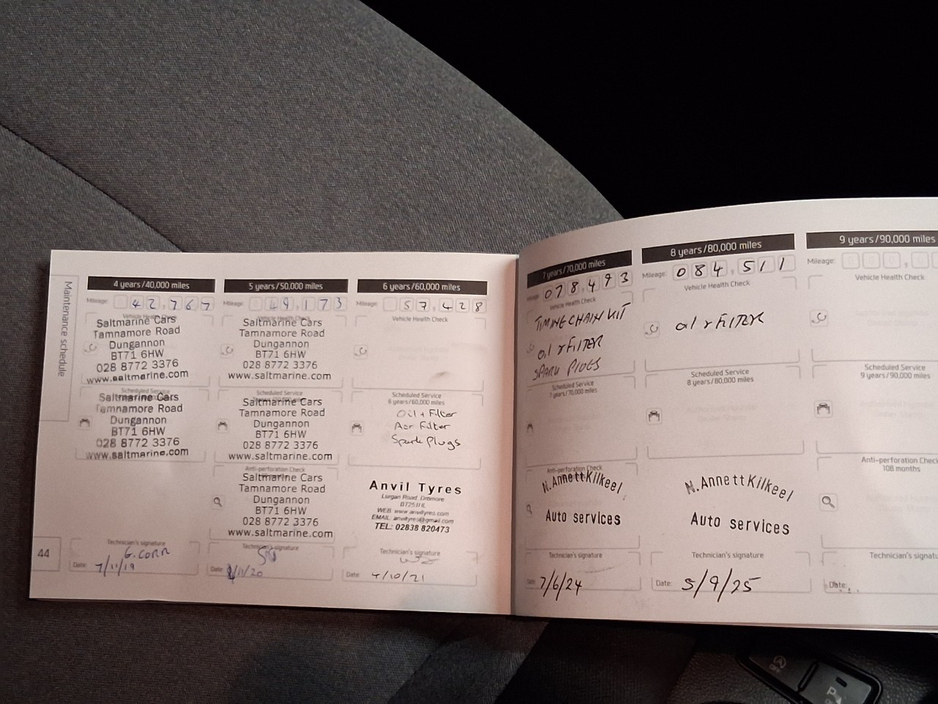 Maintenance schedule
44
4 years/40,000 miles
Mileage: 42,767
Vehicle Health Check
Saltmarine Cars
Tamnamore Road
Dungannon
BT71 6HW
028 8772 3376
www.saltmarine.com
Scheduled Service
Saltmarine Cars
Tamnamore Road
Dungannon
BT71 6HW
028 8772 3376
www.saltmarine.com
Technician's signature
G. CORR
Date: 7/11/19
5 years/50,000 miles
Mileage: 49,173
Vehicle Health Check
Saltmarine Cars
Tamnamore Road
Dungannon
BT71 6HW
028 8772 3376
www.saltmarine.com
Scheduled Service
Saltmarine Cars
Tamnamore Road
Dungannon
BT71 6HW
028 8772 3376
www.saltmarine.com
Anti-perforation Check
Saltmarine Cars
Tamnamore Road
Dungannon
BT71 6HW
028 8772 3376
www.saltmarine.com
Technician's signature
Date: /11/20
6 years/60,000 miles
Mileage: 57,428
Vehicle Health Check
Scheduled Service
6 years/60,000 miles
Oil + Filter
Air Filter
Spark Plugs
Anvil Tyres
Lurgan Road, Dromore
WEB: www.anviltyres.com
EMAIL: anviltyres@gmail.com
TEL: 02838 820473
Technician's signature
Date: 4/10/21
7 years/70,000 miles
Mileage: 078,493
Vehicle Health Check
TIMING CHAIN KIT
oil & FILTER
SPARK PLUGS
Scheduled Service
7 years/70,000 miles
Anti-perforation Check
N. Annett Kilkeel
Auto services
Technician's signature
Date: 7/6/24
8 years/80,000 miles
Mileage: 084,511
Vehicle Health Check
oil & FILTER
Scheduled Service
8 years/80,000 miles
N. Annett Kilkeel
Auto services
Technician's signature
Date: 5/9/25
9 years/90,000 miles
Mileage:
Vehicle Health Check
Scheduled Service
9 years/90,000 miles
Anti-perforation Check
108 months
Technician's signatu
Date: